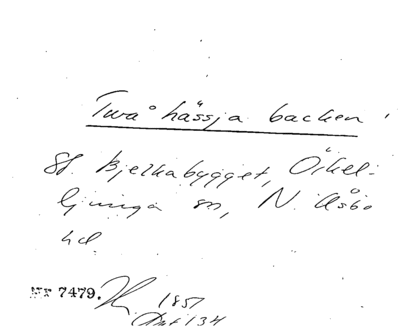 Twåhässja backen
St. Bjelkabygget, Örkel-
ljunga sn, N. Åsbo
hd
Nr 7479.
1857
134